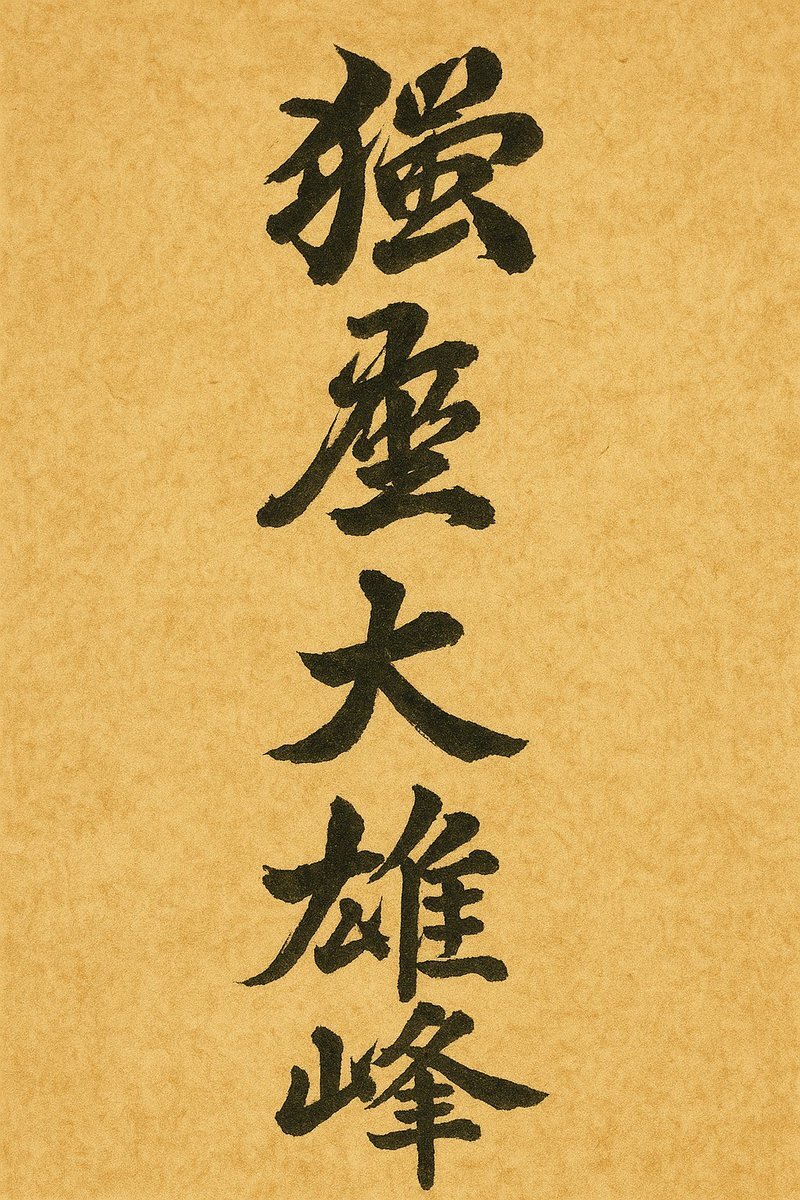 獨座大雄峰